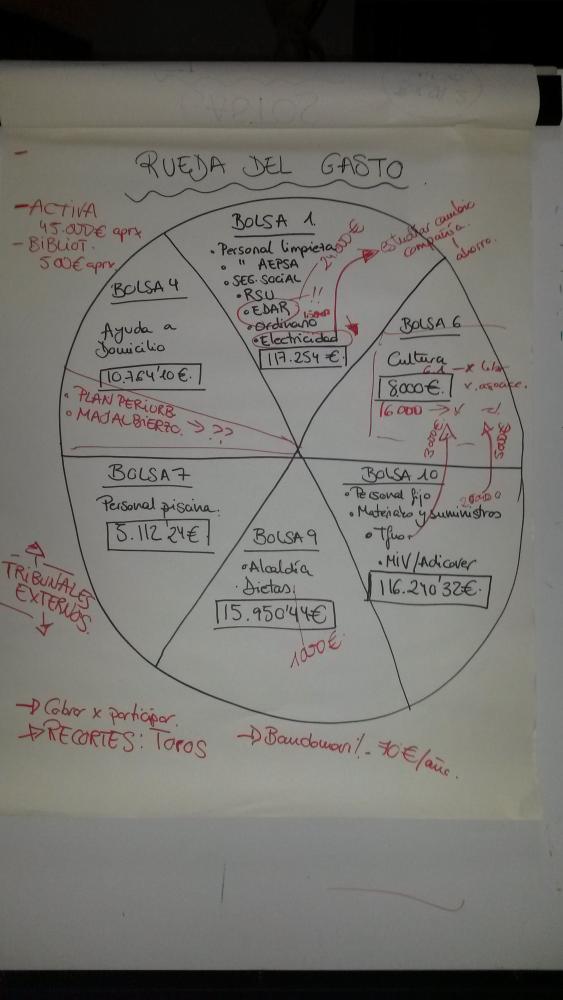 RUEDA DEL GASTO
- ACTIVA
45.000€ aprx
- BIBLIOT.
500€ aprx.
BOLSA 1
• Personal limpieza
• " AEPSA
• SEG. SOCIAL
• RSU !!
• EDAR
• Ordinario
• Electricidad
117.254€
24.000€
estudiar cambio
compañía.
ahorro.
BOLSA 6
Cultura
8000€
16000 →
3000€
20000
BOLSA 10
• Personal fijo
• Materiales y suministros
• Tfno
• MiV/Adicover
116.240'32€
BOLSA 9
• Alcaldía
• Dietas
15.950'44€
1000€
BOLSA 7
Personal piscina
5.112'24€
BOLSA 4
Ayuda a
Domicilio
10.764'10€
• PLAN PERIURB
• MAJALBIERZO → ??
TRIBUNALES
EXTERNOS
→ Cobrar x participar.
→ RECORTES: TOROS
→ Bandomovil - 70€/año.